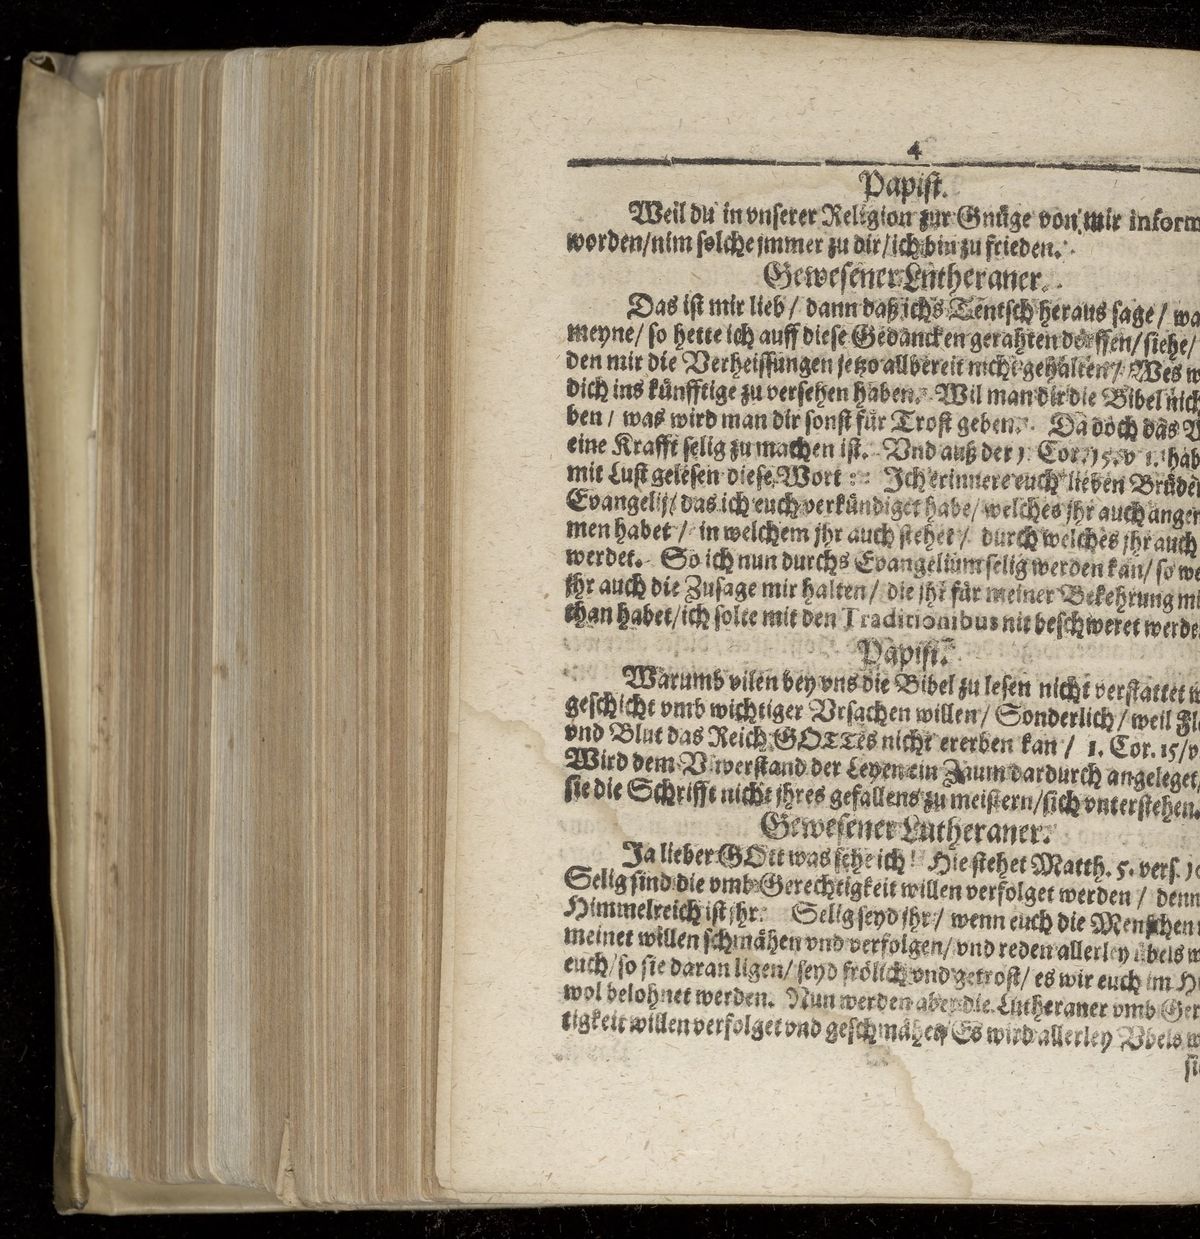 4
Papist.
Weil du in vnserer Religion zur Gnüge von mir inform
worden/nim solche jmmer zu dir/ich bin zu frieden.
Gewesener Lutheraner.
Das ist mir lieb/ dann daß ichs Teutsch heraus sage/ wa
meyne/ so hette ich auff diese Gedancken gerahten dörffen/siehe/
den mir die Verheissungen jetzo allbereit nicht gehalten/ Wes w
dich ins künfftige zu versehen haben. Wil man dir die Bibel nich
ben/ was wird man dir sonst für Trost geben. Da doch das
eine Krafft selig zu machen ist. Vnd auß der 1 Cor. 15. v 1. hab
mit Lust gelesen diese Wort: Ich erinnere euch lieben Brüde
Evangelij/das ich euch verkündiget habe/welches jhr auch ange
men habet/ in welchem jhr auch stehet/ durch welches jhr auch
werdet. So ich nun durchs Evangelium selig werden kan/ so we
jhr auch die Zusage mir halten/ die jhr für meiner Bekehrung mi
than habet/ich solte mit den Traditionibus nit beschweret werde
Papist.
Warumb vilen bey vns die Bibel zu lesen nicht verstattet w
geschicht vmb wichtiger Vrsachen willen/ Sonderlich/ weil Fle
vnd Blut das Reich GOTTes nicht ererben kan/ 1. Cor. 15/v
Wird dem Vnverstand der Leyen ein Zaum dardurch angeleget/
sie die Schrifft nicht jhres gefallens zu meistern/sich vnterstehen.
Gewesener Lutheraner.
Ja lieber GOtt was sehe ich! Hie stehet Matth. 5. vers. 10
Selig sind die vmb Gerechtigkeit willen verfolget werden/ denn
Himmelreich ist jhr. Selig seyd jhr/ wenn euch die Menschen
meinet willen schmähen vnd verfolgen/ vnd reden allerley übels w
euch/so sie daran ligen/ seyd frölich vnd getrost/ es wir euch im Hi
wol belohnet werden. Nun werden aber die Lutheraner vmb Ger
tigkeit willen verfolget vnd geschmähet/ Es wird allerley Vbels w
si